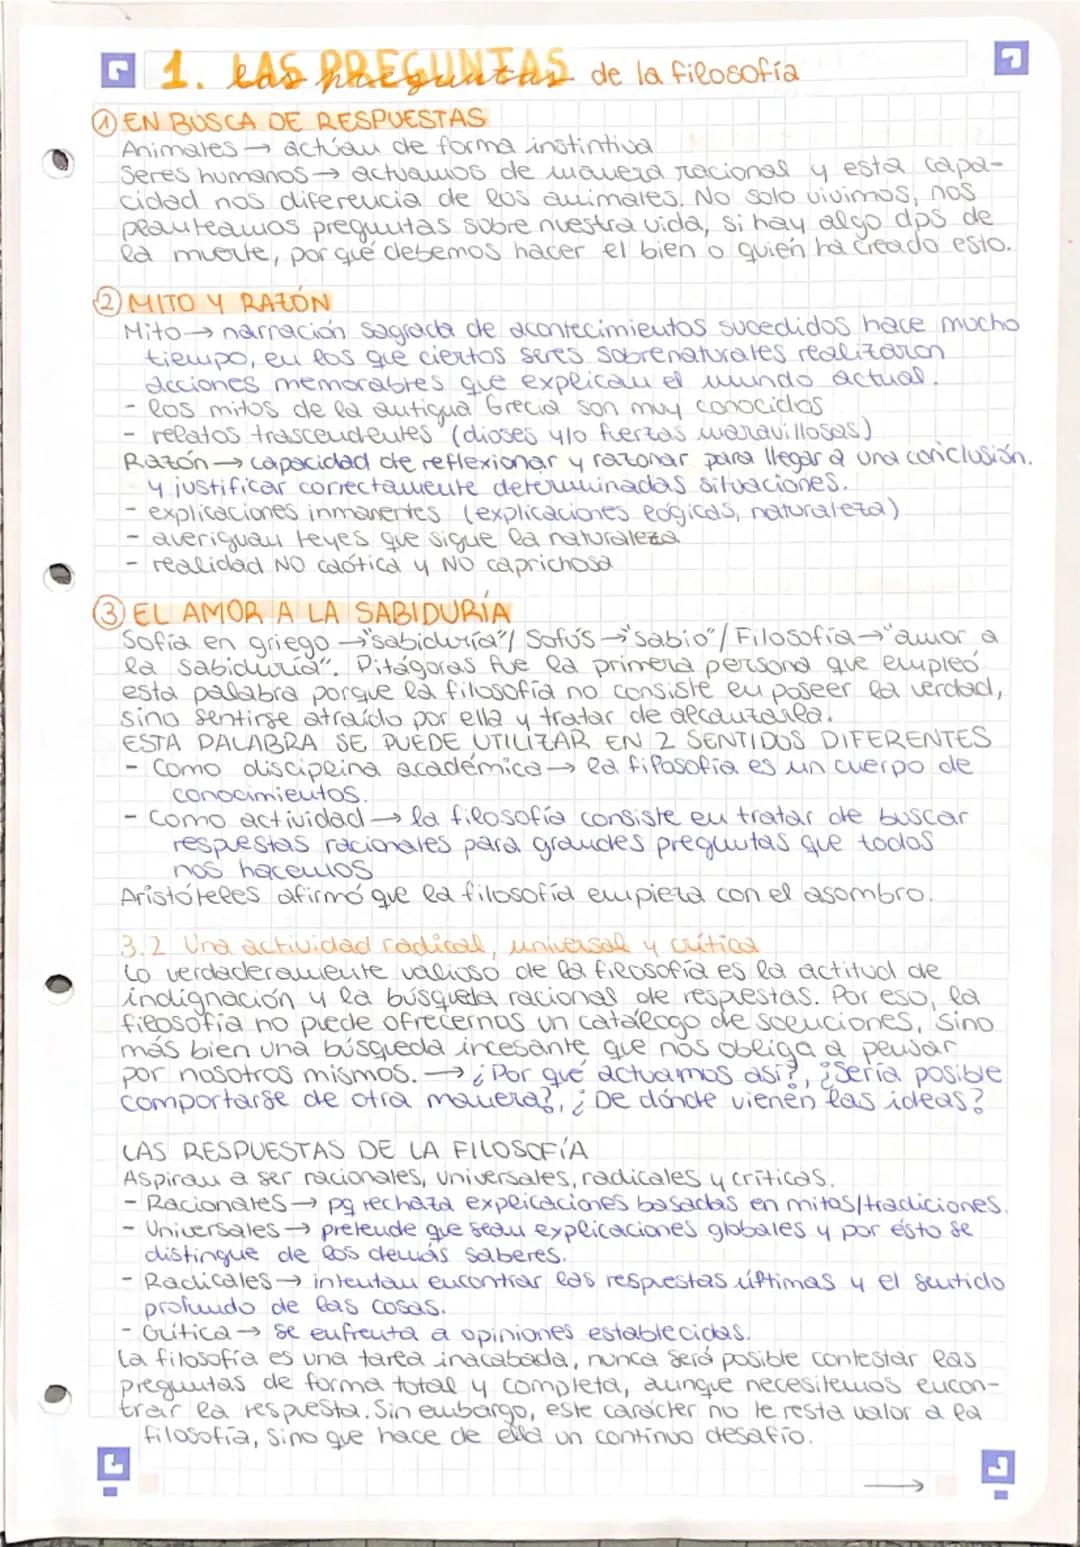 1. LAS PREGUNTAS las preguntas de la filosofía
① EN BUSCA DE RESPUESTAS
Animales → actúan de forma instintiva
Seres humanos → actuamos de manera racional y esta capa-
cidad nos diferencia de los animales. No solo vivimos, nos
planteamos preguntas sobre nuestra vida, si hay algo dps de
la muerte, por qué debemos hacer el bien o quién ha creado esto.
② MITO Y RAZÓN
Mito → narración sagrada de acontecimientos sucedidos hace mucho
tiempo, en los que ciertos seres sobrenaturales realizaron
acciones memorables que explican el mundo actual.
- los mitos de la antigua Grecia son muy conocidos
- relatos trascendentes (dioses y/o fuerzas maravillosas)
Razón → capacidad de reflexionar y razonar para llegar a una conclusión.
y justificar correctamente determinadas situaciones.
- explicaciones inmanentes (explicaciones lógicas, naturaleza)
- averiguan leyes que sigue la naturaleza
- realidad NO caótica y NO caprichosa
③ EL AMOR A LA SABIDURÍA
Sofía en griego → "sabiduría"/ Sofós → "sabio"/ Filosofía → "amor a
la sabiduría". Pitágoras fue la primera persona que empleó
esta palabra porque la filosofía no consiste en poseer la verdad,
sino sentirse atraído por ella y tratar de alcanzarla.
ESTA PALABRA SE PUEDE UTILIZAR EN 2 SENTIDOS DIFERENTES
- Como disciplina académica → la filosofía es un cuerpo de
conocimientos.
- Como actividad → la filosofía consiste en tratar de buscar
respuestas racionales para grandes preguntas que todos
nos hacemos
Aristóteles afirmó que la filosofía empieza con el asombro.
3.2 Una actividad radical, universal y crítica
Lo verdaderamente valioso de la filosofía es la actitud de
indignación y la búsqueda racional de respuestas. Por eso, la
filosofía no puede ofrecernos un catálogo de soluciones, sino
más bien una búsqueda incesante que nos obliga a pensar
por nosotros mismos. → ¿Por qué actuamos así?, ¿Sería posible
comportarse de otra manera?, ¿De dónde vienen las ideas?
LAS RESPUESTAS DE LA FILOSOFÍA
Aspiran a ser racionales, universales, radicales y críticas.
- Racionales → pq rechaza explicaciones basadas en mitos/tradiciones.
- Universales → pretende que sean explicaciones globales y por ésto se
distingue de los demás saberes.
- Radicales → intentan encontrar las respuestas últimas y el sentido
profundo de las cosas.
- Crítica → se enfrenta a opiniones establecidas.
La filosofía es una tarea inacabada, nunca será posible contestar las
preguntas de forma total y completa, aunque necesitemos encon-
trar la respuesta. Sin embargo, este carácter no le resta valor a la
filosofía, sino que hace de ella un continuo desafío.
→